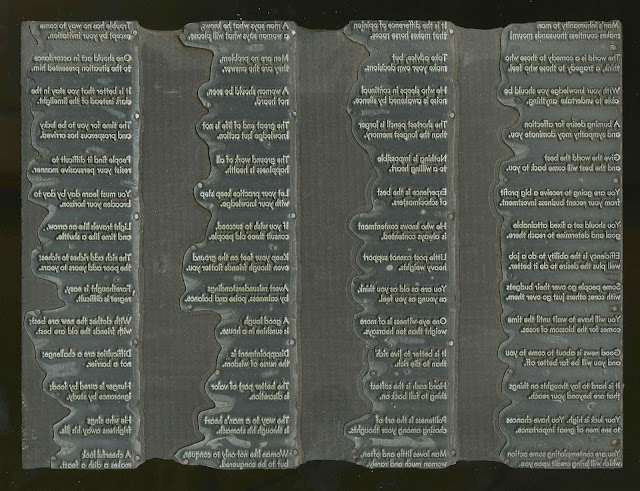 Man's inhumanity to man
makes countless thousands mourn!
The world is a comedy to those who
think, a tragedy to those who feel.
With your knowledge you should be
able to undertake anything.
A burning desire for affection
and sympathy may dominate you.
Give the world the best
and the best will come back to you.
You are going to receive a big profit
from your recent business investment.
You should set a fixed attainable
goal and determine to reach there.
Efficiency is the ability to do a job
well plus the desire to do it better.
Some people go over their budgets
with care, others just go over them.
You will have to wait until the time
comes for the blossom of roses.
Good news is about to come to you
and you will be far better off.
It is hard to lay thoughts on things
that are beyond your reach.
Your luck is high. You have chances
to see men of great importance.
You are contemplating some action
which will bring credit upon you.
It is the difference of opinion
that makes horse races.
Take advice, but
make your own decision.
He who sleeps in continual
noise is awakened by silence.
The shortest pencil is longer
than the longest memory.
Nothing is impossible
to a willing heart.
Experience is the best
of schoolmasters.
He who knows contentment
is always contented.
Little coast support
heavy weights.
You are as old as you think,
as young as you feel.
One eye-witness is of more
weight than ten hearsays.
It is better to live rich
than to die rich.
Hard luck is the softest
thing to fall back on.
Politeness is the art of
choosing among your thoughts.
Man loves little and often,
woman much and rarely
A man says what he knows,
a woman says what will please.
Men are problem,
they are the answer.
A woman should be seen,
not heard.
The great end of life is not
knowledge but action.
The ground work of all
happiness is health.
Let your practice keep step
with your knowledge.
If you wish to succeed,
consult three old people.
Keep your feet on the ground
even though friends flatter you.
Avert misunderstandings
by calmness, poise and balance.
A good laugh
is sunshine in a house.
Disappointment is
the nurse of wisdom.
The better part of valor
is discretion.
The way to a man's heart
is through his stomach.
Woman like not only to conquer,
but to be conquered.
Trouble has no way to come
except by your invitation.
One should act in accordance
to the situation presented him.
It is better that you stay in the
dark instead of the limelight.
The time for you to be lucky
and prosperous has arrived.
People find it difficult to
resist your persuasive manner.
You must learn day by day to
broaden your horizon.
Light travels like an arrow,
and time like a shuttle.
The rich add riches to riches;
the poor add years to years.
Forethought is easy,
regret is difficult.
With clothes the new are best;
with friends the old are best.
Difficulties are a challenge;
not a barrier.
Hunger is cured by food;
ignorance by study.
He who sings
frightens away his ills.
A cheerful look
makes a dish a feast.